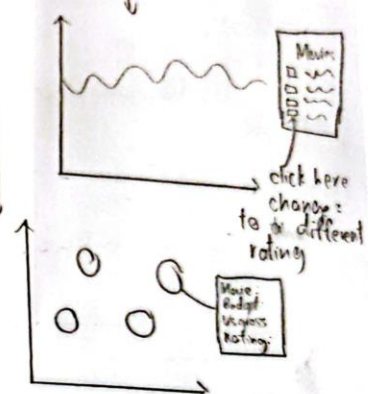 Movies
click here
change
to a different
rating
Movie:
Budget:
US gross
Rating: